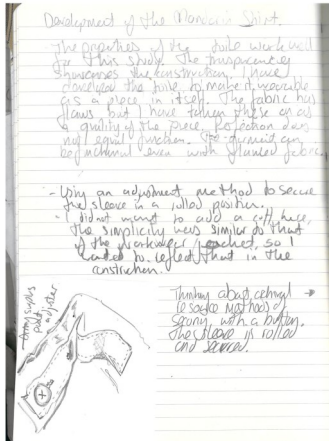 Development of the Mandarin Shirt.
- The properties of the toile work well
for this study. The transparency
showcases the construction. I have
developed the toile to make it wearable
as a piece in itself. The fabric has
flaws but I have taken these on as
a quality of the piece. Perfection does
not equal function. The garment can
be functional even with flawed fabric.
- Using an adjustment method to secure
the sleeve in a rolled position.
- I did not want to add a cuff here,
the simplicity was similar to that
of the workwear jacket, so I
wanted to reflect that in the
construction.
Army surplus
adjuster
Thinking about
methods of
securing, with a button.
The sleeve is rolled
and secured.